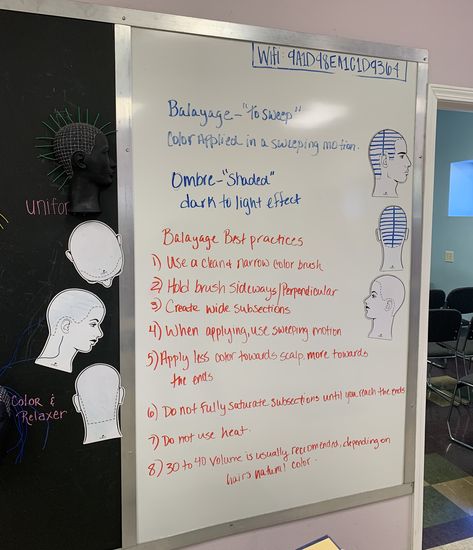 Wifi: 9A1D48EA1C1D9364
Balayage - "To sweep"
Color Applied in a sweeping motion.
Ombre - "Shaded"
dark to light effect
Balayage Best practices
1) Use a clean & narrow color brush
2) Hold brush sideways/Perpendicular
3) Create wide subsections
4) When applying, use sweeping motion
5) Apply less color towards scalp, more towards
the ends
6) Do not fully saturate subsections until you reach the ends
7) Do not use heat.
8) 30 to 40 volume is usually recommended, depending on
hairs natural color.
uniform
Color &
Relaxer